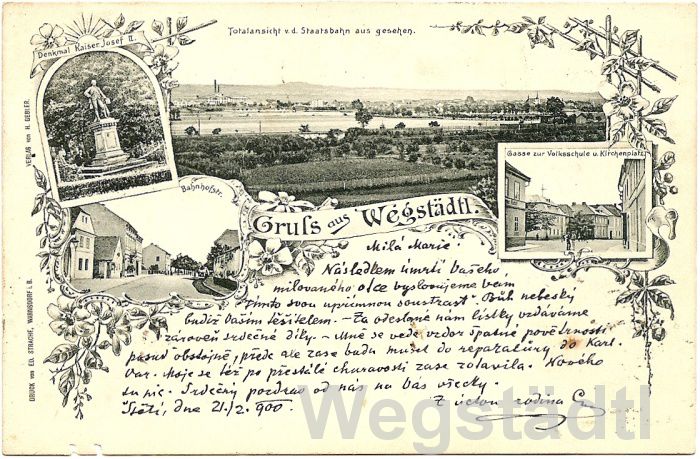 Totalansicht v. d. Staatsbahn aus gesehen.
Denkmal Kaiser Josef II.
VERLAG von H. GEBLER.
Gasse zur Volksschule u. Kirchenplatz.
Bahnhofstr.
Gruss aus Wegstädtl.
DRUCK von ED. STRACHE, WARNSDORF i. B.
Milá Marie!
Následkem úmrtí Vašeho
milovaného otce vyslovujeme vám
tímto svou upřímnou soustrast. Bůh nebeský
budiž Vaším těšitelem. - Za odeslané nám lístky vzdáváme
zároveň srdečné díky. - Mně se vede vzdor špatné povětrnosti
posud obstojně, přede ale zase budu muset do reparatury do Karl.
Var. Moje se též po přestálé churavosti zase zotavila. Nového
tu nic. Srdečný pozdrav od nás na Vás všecky.
Štětí, dne 21./2. 900.
Z úctou rodina
Wegstädtl